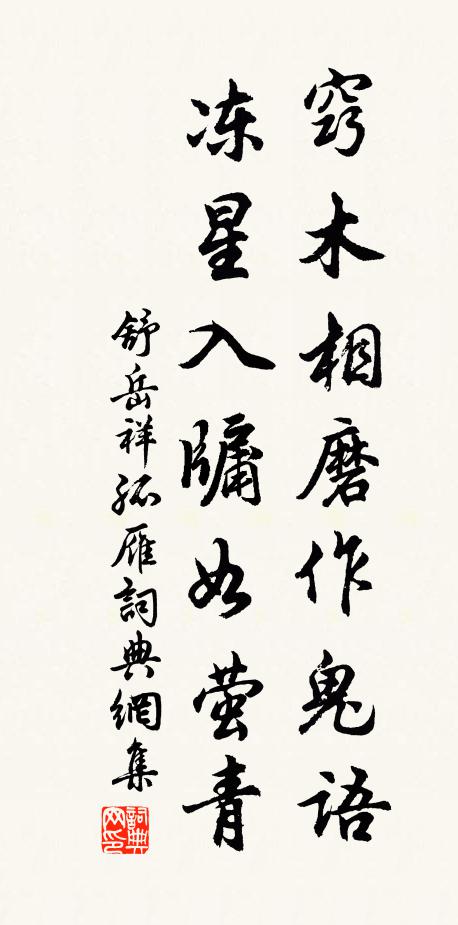 窍木相磨作鬼语
冻星入牖如萤青
舒岳祥孤雁詞典網集
詞典网印